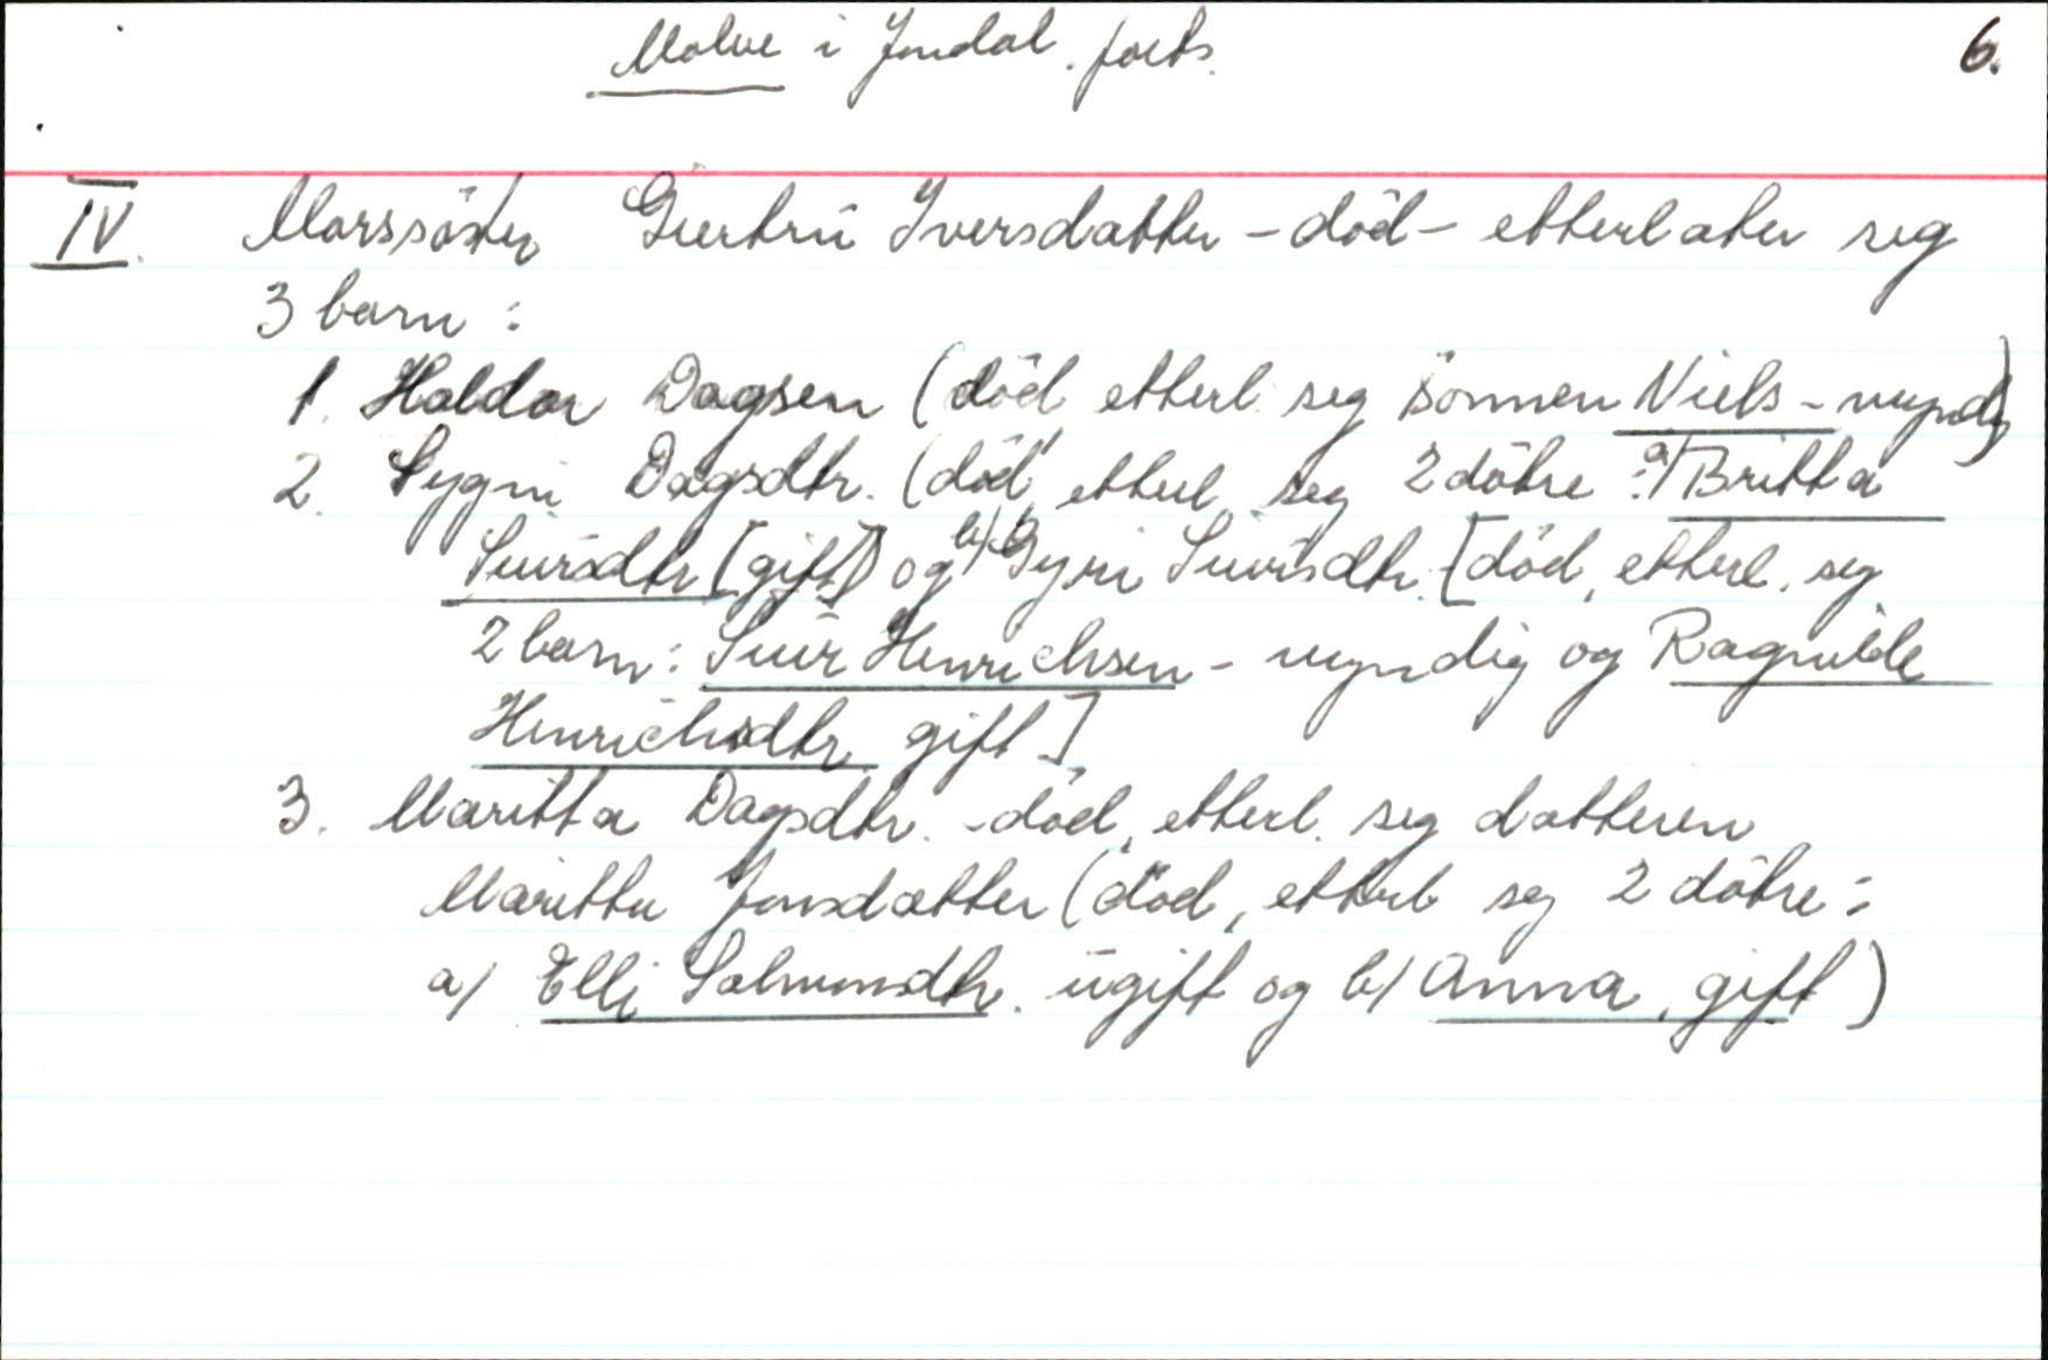 Molve i Jondal. forts.
6.
IV. Morssöster Giertrü Iversdatter - död - etterlater seg
3 barn :
1. Haldor Dagsen (död etterl. seg sönnen Niels - myndig)
2. Sygni Dagsdtr. (död, etterl. seg 2 dötre : a/ Britta
Siursdtr [gift] og b/ Gyri Siursdtr. [död, etterl. seg
2 barn : Siur Henrichsen - myndig og Ragnilde
Henrichsdtr. gift]
3. Maritta Dagsdtr. - död, etterl. seg datteren
Maritta Jonsdatter (död, etterl. seg 2 dötre :
a/ Elli Salmonsdtr. ügift og b/ Anna, gift)